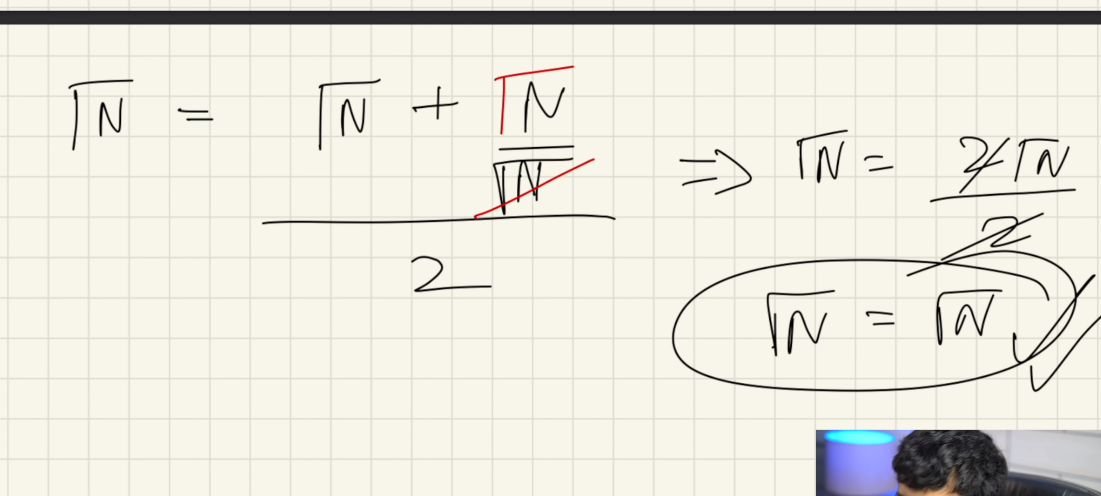 √N = (√N + √N/√N)/2 ⇒ √N = 2√N/2
√N = √N ✓